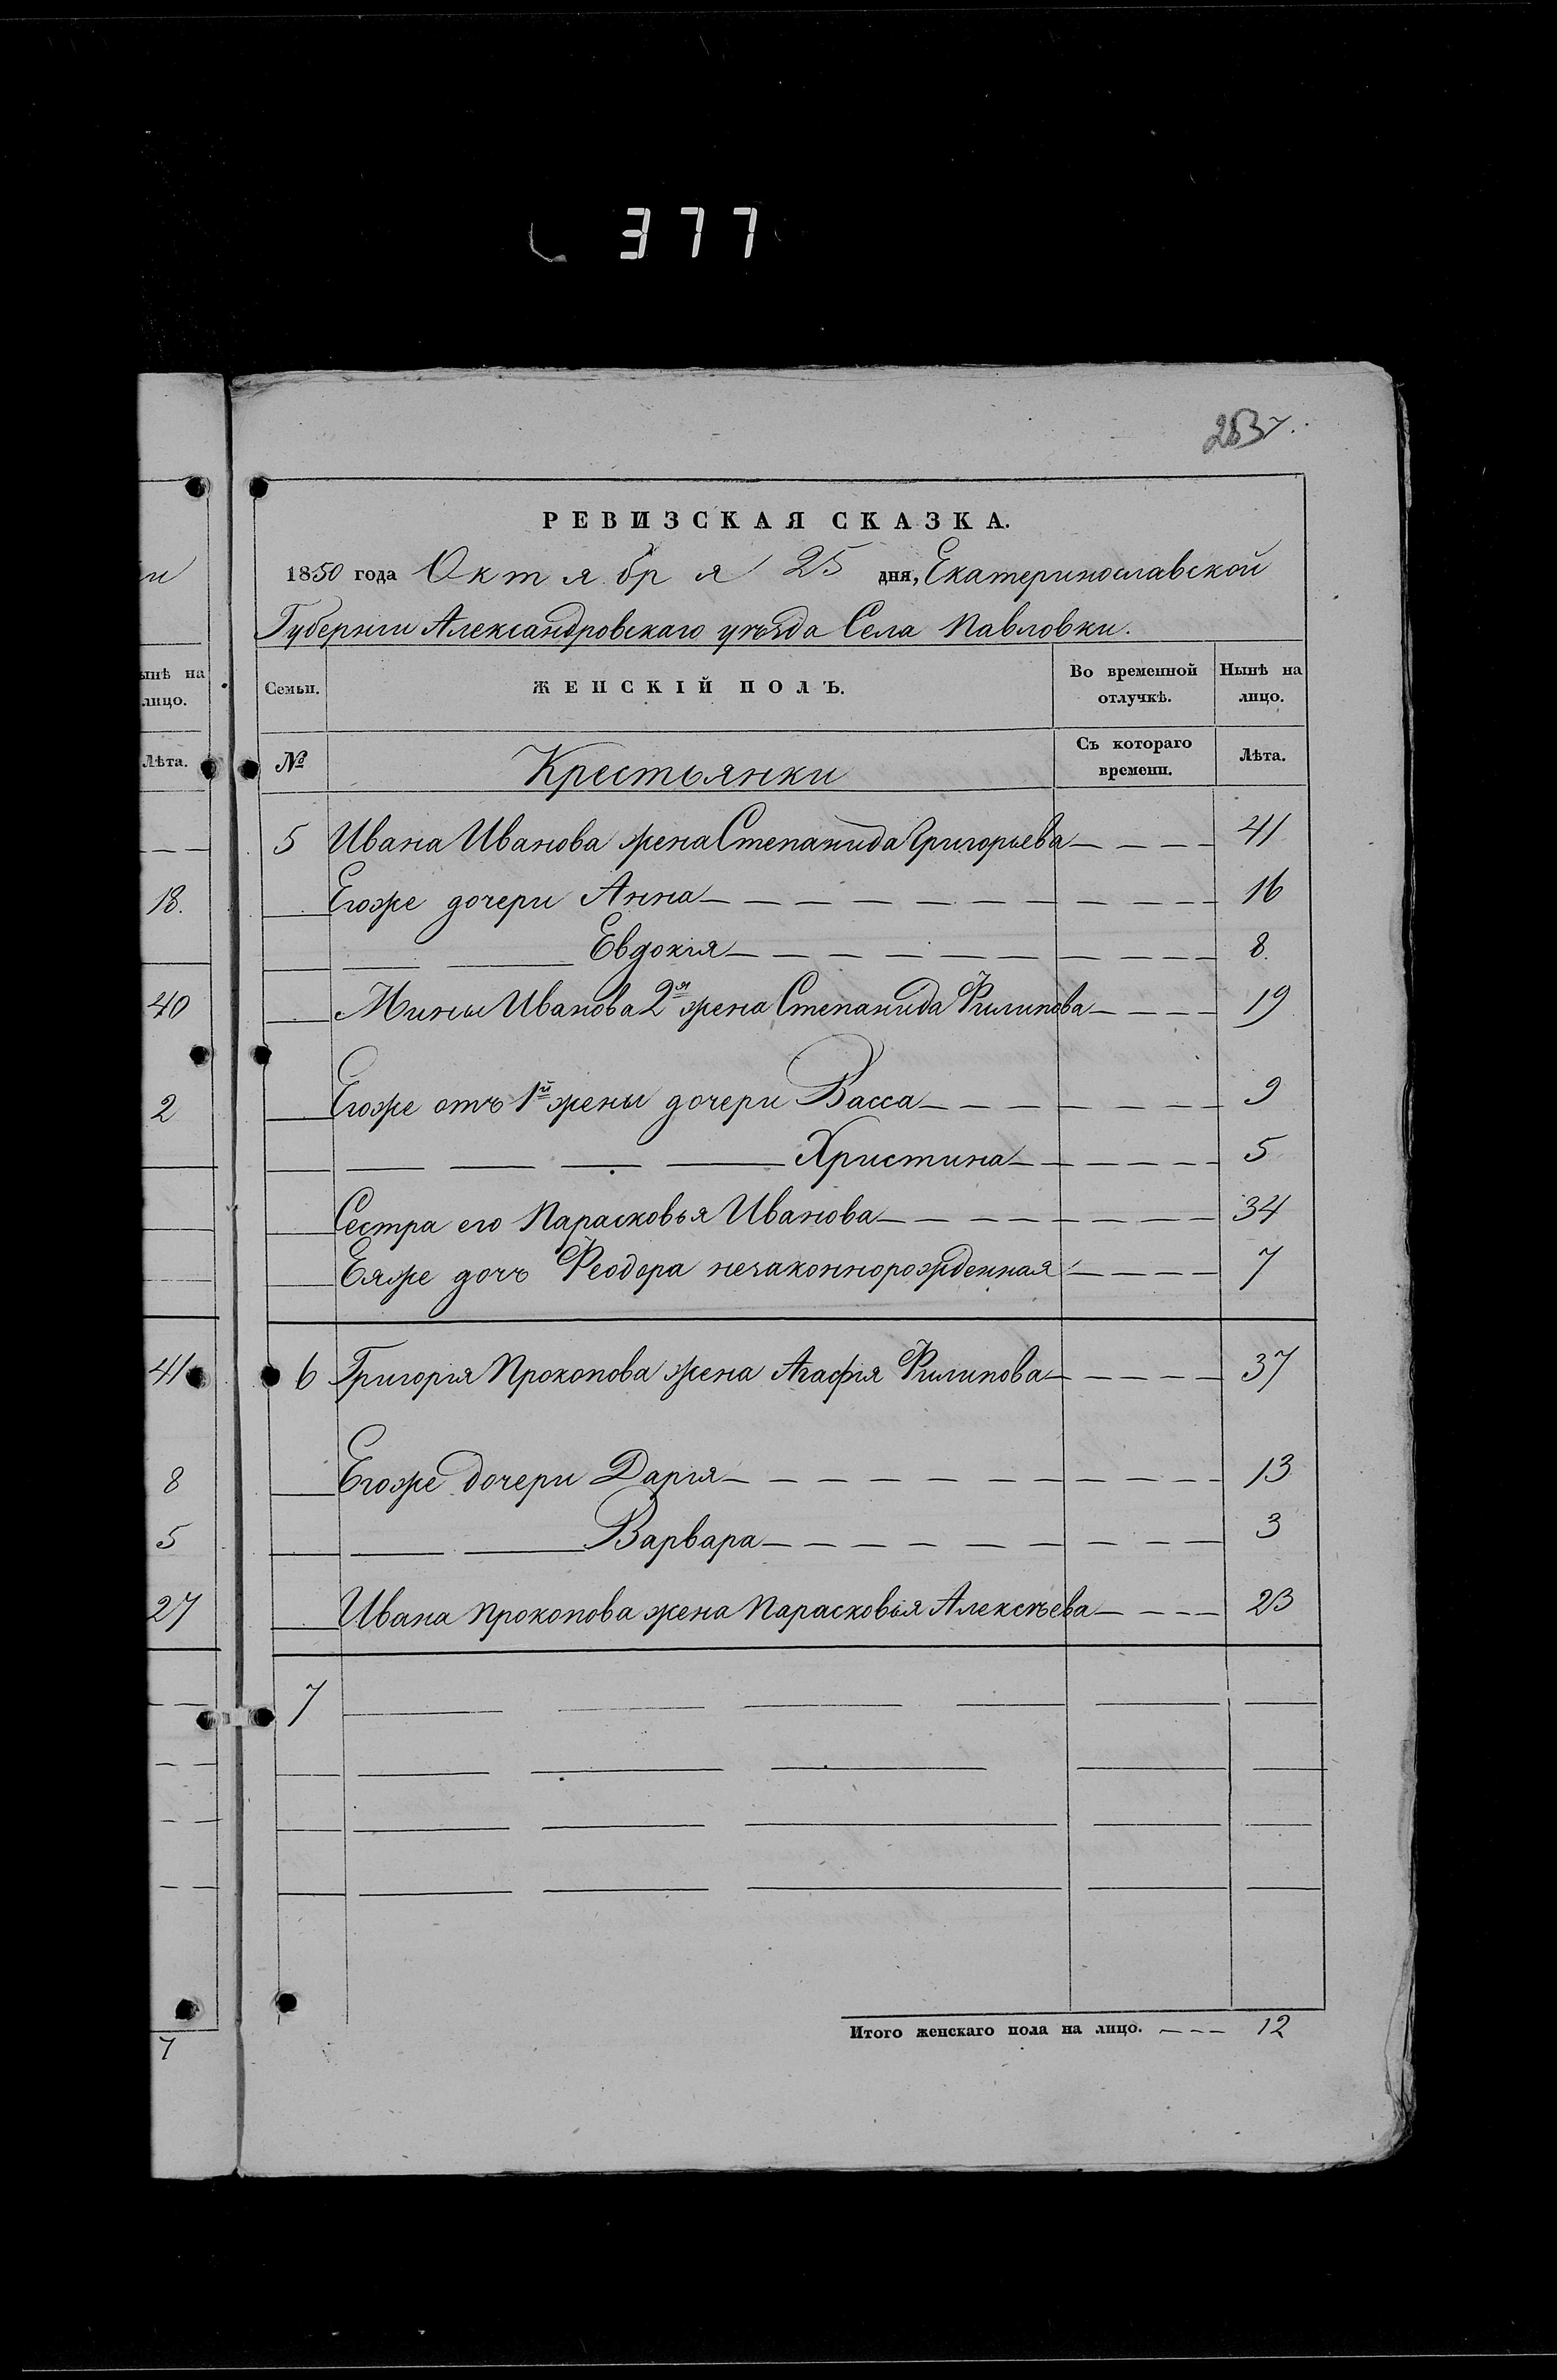 377
РЕВИЗСКАЯ СКАЗКА.
1850 года Октября 25 дня, Екатеринославской
Губернии Александровскаго уѣзда Села Павловки.
ынѣ на лицо.
Лѣта.
18.
40
2
41
8
5
27
7
Семьи. ЖЕНСКІЙ ПОЛЪ. Во временной отлучкѣ. Нынѣ на лицо.
№ Крестьянки Съ котораго времени. Лѣта.
5 Ивана Иванова жена Степанида Григорьева 41
Егоже дочери Анна 16
Евдокія 8.
Мины Иванова 2я жена Степанида Филипова 19
Егоже отъ 1й жены дочери Васса 9
Христина 5
Сестра его Парасковья Иванова 34
Еяже дочь Феодора незаконнорожденная 7
6 Григорія Прокопова жена Агафія Филипова 37
Егоже дочери Дарія 13
Варвара 3
Ивана Прокопова жена Парасковья Алексѣева 23
7
Итого женскаго пола на лицо. 12